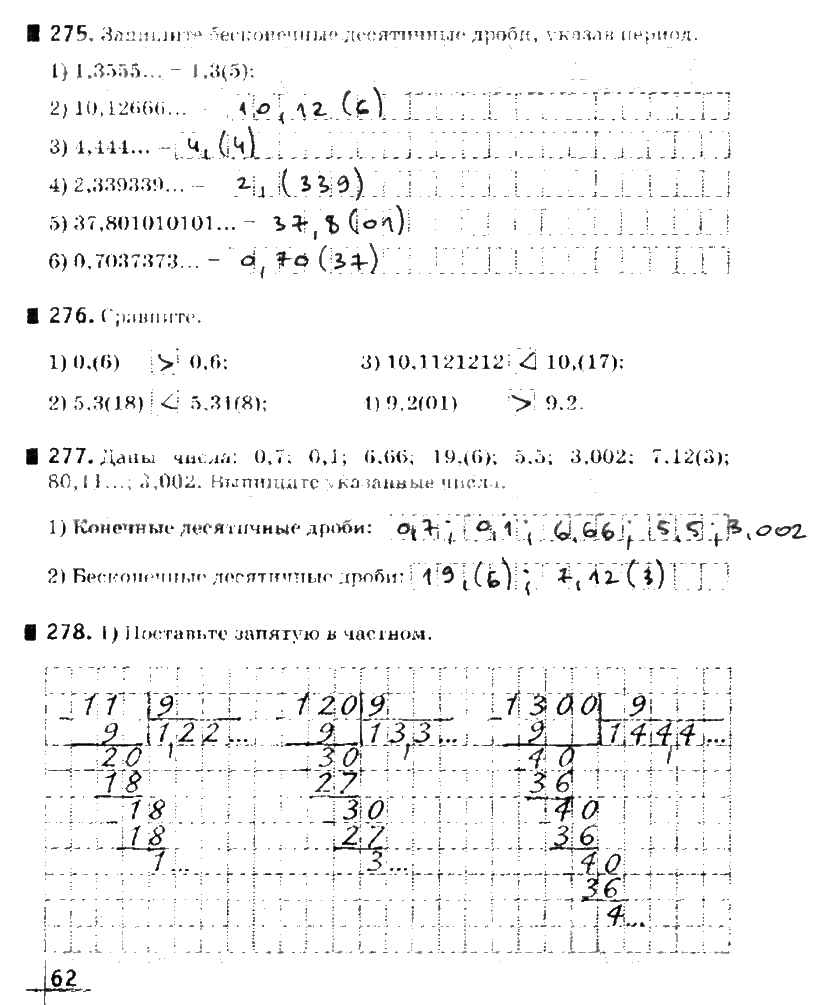 275. Запишите бесконечные десятичные дроби, указав период.
1) 1,3555... – 1,3(5);
2) 10,12666... – 10,12(6)
3) 4,444... – 4,(4)
4) 2,339339... – 2,(339)
5) 37,801010101... – 37,8(01)
6) 0,7037373... – 0,70(37)
276. Сравните.
1) 0,(6) > 0,6; 3) 10,1121212 < 10,(17);
2) 5,3(18) < 5,31(8); 4) 9,2(01) > 9,2.
277. Даны числа: 0,7; 0,1; 6,66; 19,(6); 5,5; 3,002; 7,12(3);
80,11...; 3,002. Выпишите указанные числа.
1) Конечные десятичные дроби: 0,7; 0,1; 6,66; 5,5; 3,002
2) Бесконечные десятичные дроби: 19,(6); 7,12(3)
278. 1) Поставьте запятую в частном.
11 9 120 9 1300 9
9 1,22... 9 13,3... 9 144,4...
20 30 40
18 27 36
18 30 40
18 27 36
1... 3... 40
36
4...
62